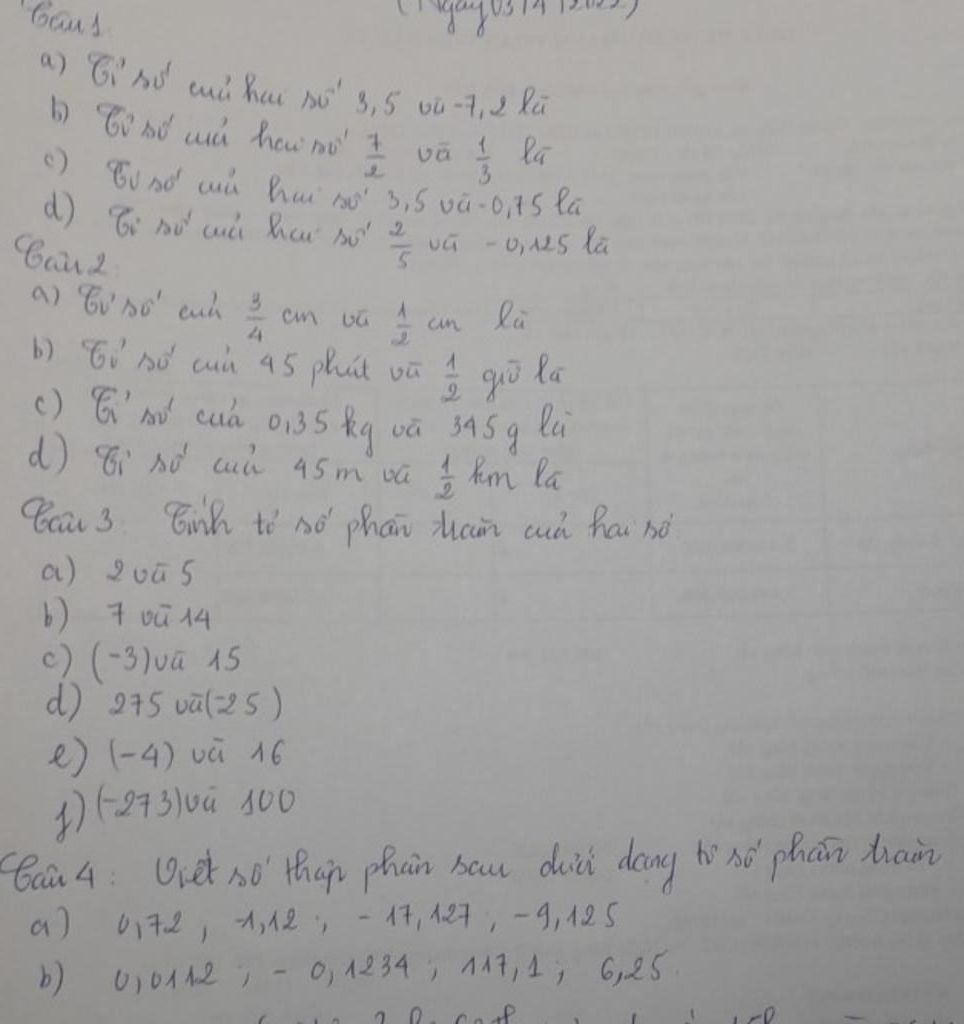 (Ngày 03/4/2022)
Câu 1
a) Tỉ số của hai số 3,5 và -7,2 là
b) Tỉ số của hai số 7/2 và 1/3 là
c) Tỉ số của hai số 3,5 và -0,75 là
d) Tỉ số của hai số 2/5 và -0,125 là
Câu 2
a) Tỉ số của 3/4 cm và 1/2 cm là
b) Tỉ số của 45 phút và 1/2 giờ là
c) Tỉ số của 0,35 kg và 345 g là
d) Tỉ số của 45 m và 1/2 km là
Câu 3. Tính tỉ số phần trăm của hai số
a) 2 và 5
b) 7 và 14
c) (-3) và 15
d) 275 và (-25)
e) (-4) và 16
f) (-273) và 100
Câu 4: Viết số thập phân sau dưới dạng tỉ số phần trăm
a) 0,72 , -1,12 ; -17,127 ; -9,125
b) 0,0112 ; -0,1234 ; 117,1 ; 6,25